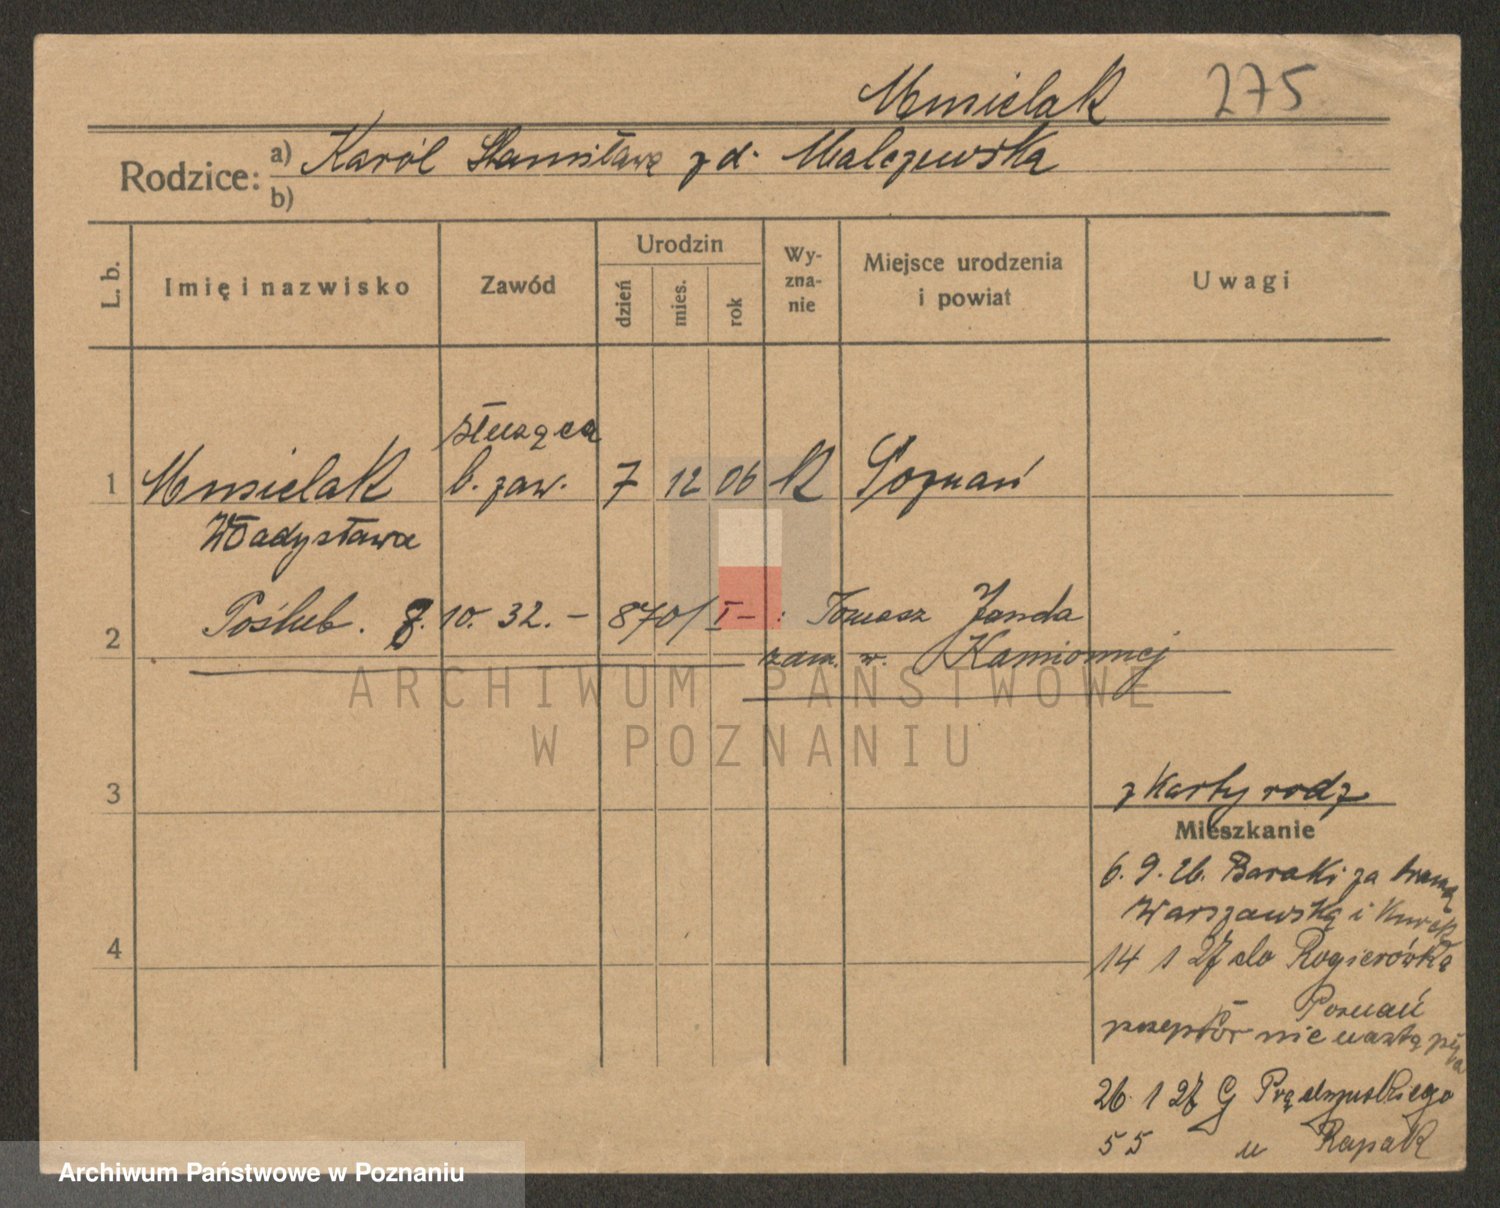 Musielak 275
Rodzice: a) Karól Stanisława z d. Malczewska
b)
L. b. Imię i nazwisko Zawód Urodzin dzień mies. rok Wy-zna-nie Miejsce urodzenia i powiat Uwagi
służąca
1 Musielak b. zaw. 7 12 06 K Poznań
Władysława
2 Poślub. 8. 10. 32. – 870/I – : Tomasz Janda
zam. w. Kamionnej
ARCHIWUM PAŃSTWOWE
W POZNANIU
3 z Karty rodz
Mieszkanie
6. 9. 26. Baraki za bramą
Warszawską i
4 14 1 27 do Rogierówka
Poznań
nie nastąpiła
26. 1 27 G Prądzyńskiego
55 u Rapak
Archiwum Państwowe w Poznaniu